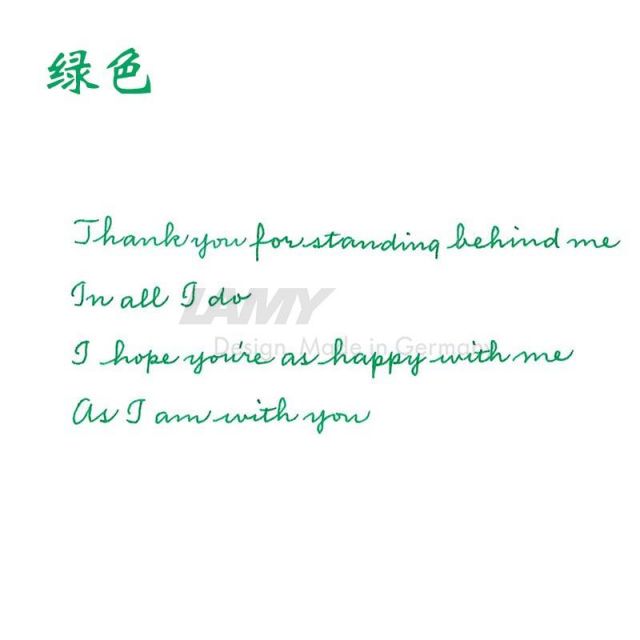 绿色
Thank you for standing behind me
In all I do
LAMY
Design. Made in Germany
I hope you're as happy with me
As I am with you